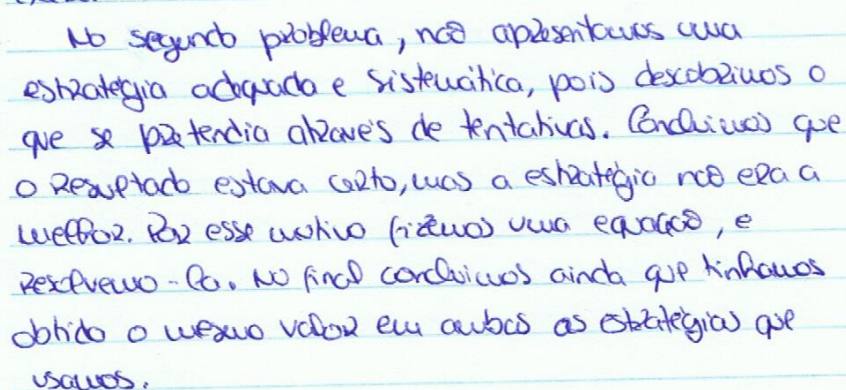 No segundo problema, não apresentamos uma
estratégia adequada e sistemática, pois descobrimos o
que se pretendia através de tentativas. Concluimos que
o resultado estava certo, mas a estratégia não era a
melhor. Por esse motivo fizémos uma equação, e
resolvemo-la. No final concluimos ainda que tinhamos
obtido o mesmo valor em ambas as estratégias que
usamos.